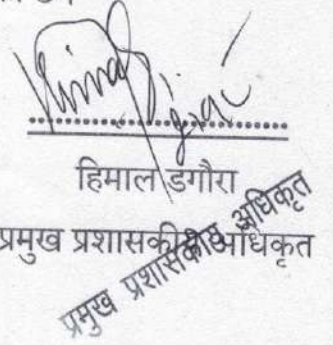 हिमाल डगौरा
प्रमुख प्रशासकीय अधिकृत
प्रमुख प्रशासकीय अधिकृत